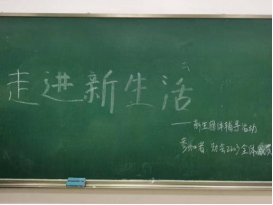 走进新生活
——新生团体辅导活动
参加者：财会2203全体